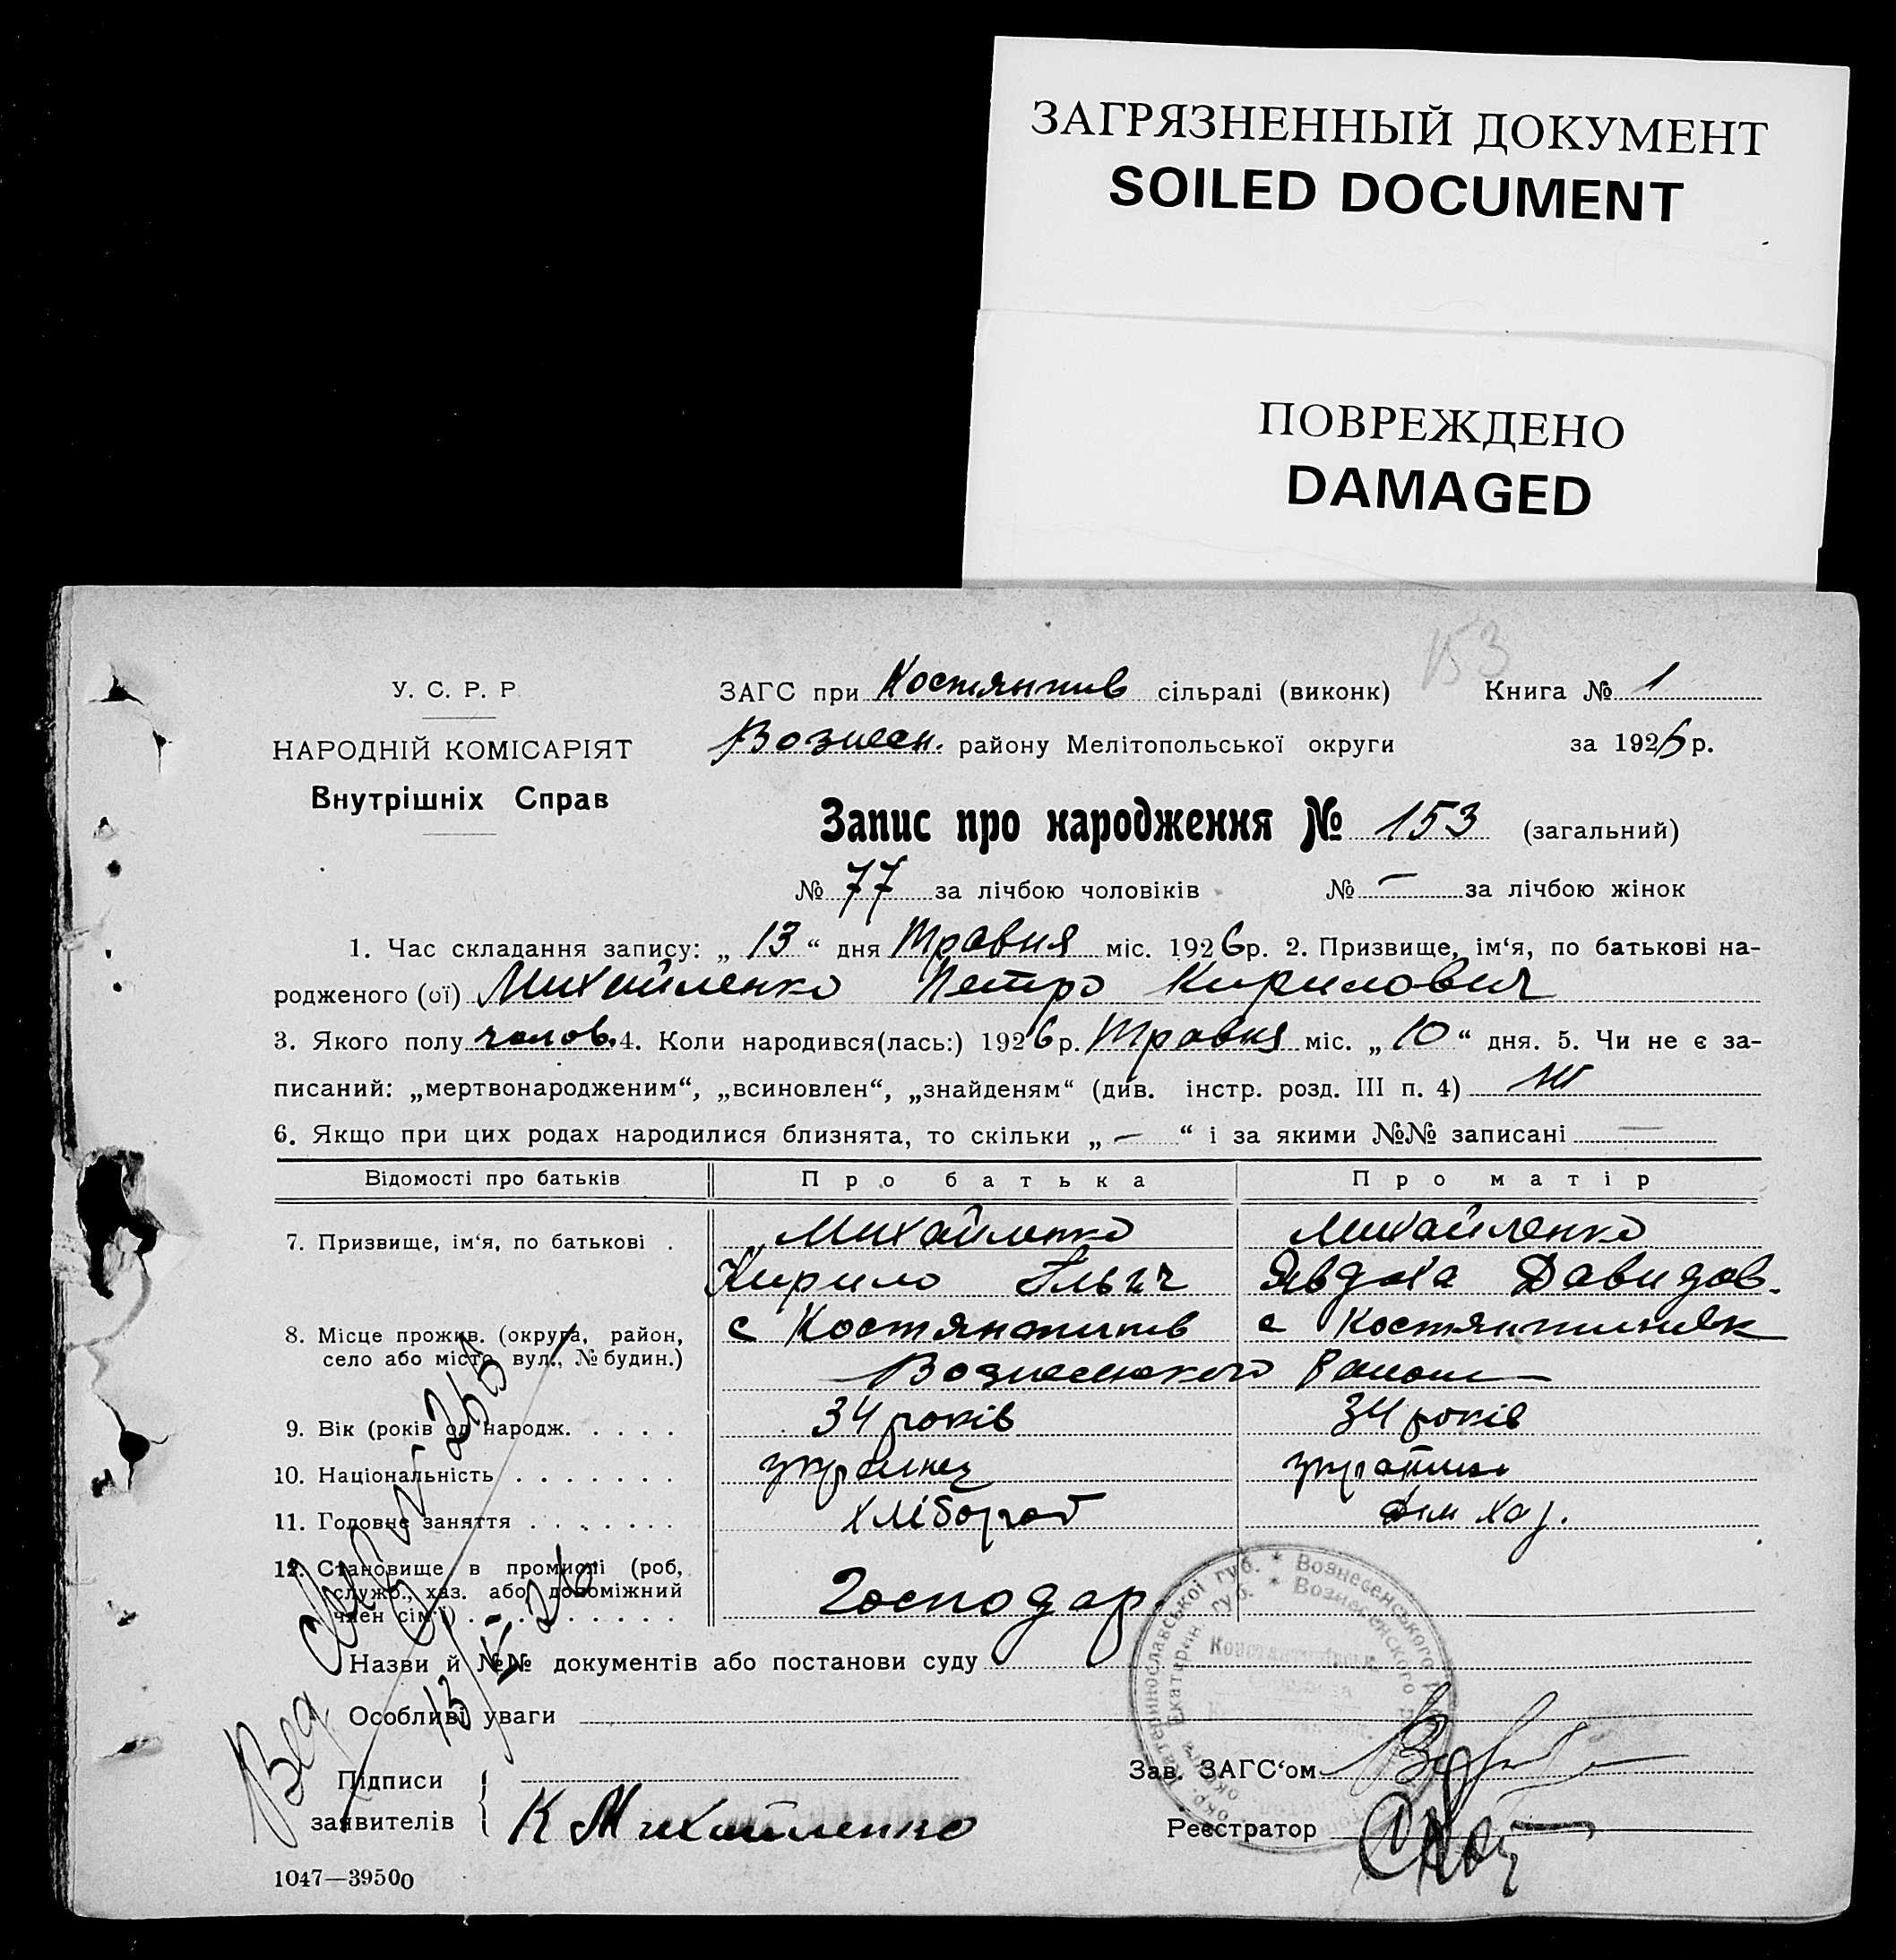 ЗАГРЯЗНЕННЫЙ ДОКУМЕНТ
SOILED DOCUMENT
ПОВРЕЖДЕНО
DAMAGED
153
У. С. Р. Р.
НАРОДНІЙ КОМІСАРІЯТ
Внутрішніх Справ
ЗАГС при Костянтив сільраді (виконк) Книга № 1
Вознесен. району Мелітопольської округи за 1926 р.
Запис про народження № 153 (загальний)
№ 77 за лічбою чоловіків № — за лічбою жінок
1. Час складання запису: „ 13 “ дня Травня міс. 1926р. 2. Призвище, ім‘я, по батькові на-
родженого (ої) Михайленко Петро Кирилович
3. Якого полу чолов. 4. Коли народився(лась:) 1926р. Травня міс. „ 10 “ дня. 5. Чи не є за-
писаний: „мертвонародженим“, „всиновлен“, „знайденям“ (див. інстр. розд. III п. 4) ні
6. Якщо при цих родах народилися близнята, то скільки „ — “ і за якими №№ записані —
Відомості про батьків Про батька Про матір
7. Призвище, ім‘я, по батькові . Михайленко Михайленко
Кирило Ільич Явдоха Давидов.
8. Місце прожив. (округа, район, с Костянтинів с Костянтинівк
село або місто, вул., № будин.) Вознесенского Району
9. Вік (років од народж. . . . . 34 років 34 років
10. Національність . . . . . . . українец українка
11. Головне заняття . . . . . . . хлібороб дом хоз.
12. Становище в промислі (роб,
служб., хаз. або допоміжний Господар.
член сім‘ї) . . . . . . . . . .
Назви й №№ документів або постанови суду
Особливі уваги
13/V 26
Підписи Зав. ЗАГС‘ом
заявителів К Михайленко Реєстратор
1047—39500